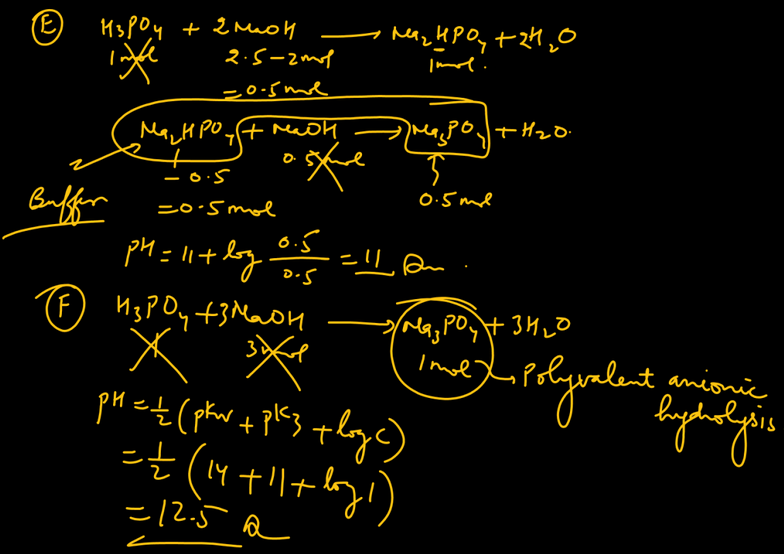 (E) H₃PO₄ + 2NaOH ⟶ Na₂HPO₄ + 2H₂O
1mol 2.5-2mol 1mol.
=0.5mol
Na₂HPO₄ + NaOH ⟶ Na₃PO₄ + H₂O.
1 0.5mol
-0.5 0.5mol
Buffer =0.5mol
pH = 11 + log 0.5/0.5 = 11 Ans.
(F) H₃PO₄ + 3NaOH ⟶ Na₃PO₄ + 3H₂O
1 3mol 1mol → Polyvalent anionic
hydrolysis
pH = 1/2 (pKw + pK₃ + log C)
= 1/2 (14 + 11 + log 1)
= 12.5